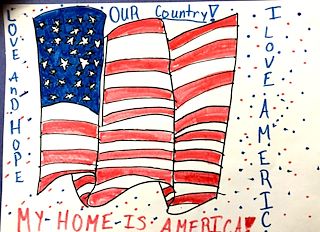 OUR Country!
LOVE AND HOPE
I LOVE AMERIC
MY HOME IS AMERICA!